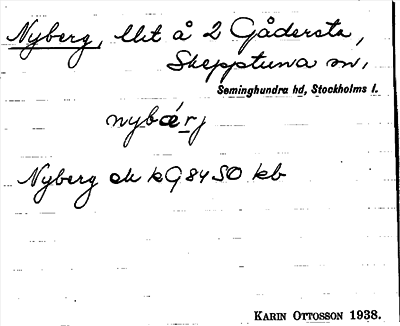 Nyberg, llit å 2 Gådersta,
Skepptuna sn,
Seminghundra hd, Stockholms l.
nybæ̀rj
Nyberg ek kG84SO kb
KARIN OTTOSSON 1938.